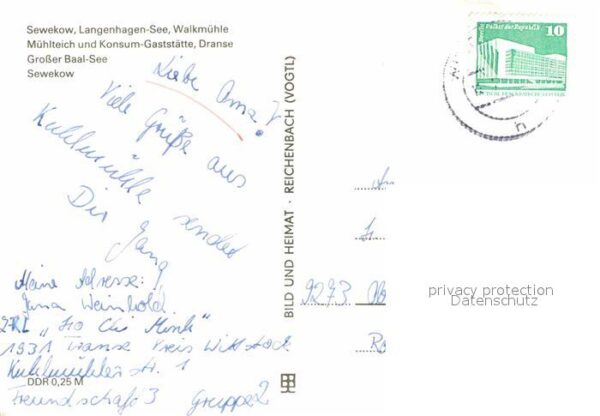 Sewekow, Langenhagen-See, Walkmühle
Mühlteich und Konsum-Gaststätte, Dranse
Großer Baal-See
Sewekow
Liebe Oma!
Viele Grüße aus
Kuhlmühle sendet
Dir
Meine Adresse:
Jana Weinhold
"Ho Chi Minh"
1931 Dranse Kreis Wittstock
Kuhlmühler Str. 1
Freundschaft 3 Gruppe 2
DDR 0,25 M
BILD UND HEIMAT · REICHENBACH (VOGTL)
Berlin Palast der Republik
10
9273
privacy protection
Datenschutz